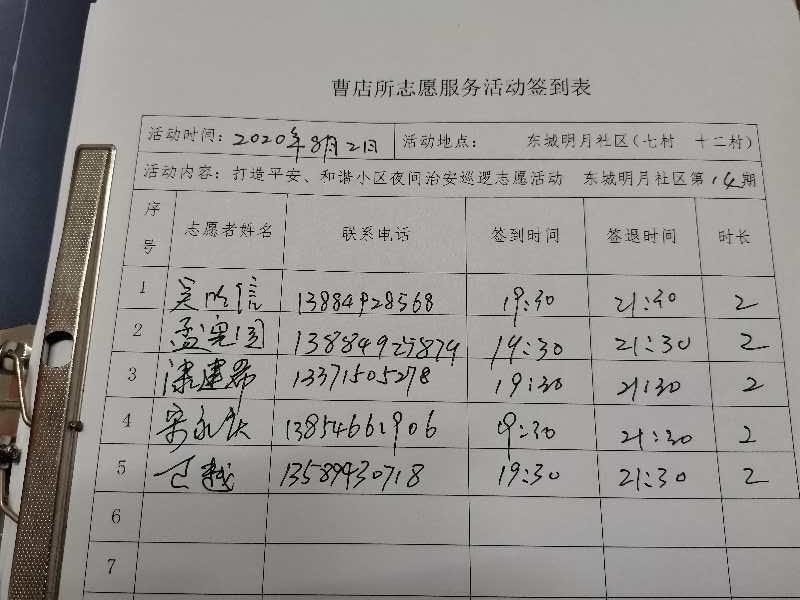 曹店所志愿服务活动签到表
活动时间：2020年8月2日 活动地点： 东城明月社区（七村 十二村）
活动内容：打造平安、和谐小区夜间治安巡逻志愿活动 东城明月社区第14期
序号 志愿者姓名 联系电话 签到时间 签退时间 时长
1 吴 信 13884928568 19:30 21:30 2
2 孟 13884925874 19:30 21:30 2
3 建 13371505278 19:30 21:30 2
4 宋永 13854661906 19:30 21:30 2
5 越 13589930718 19:30 21:30 2
6
7